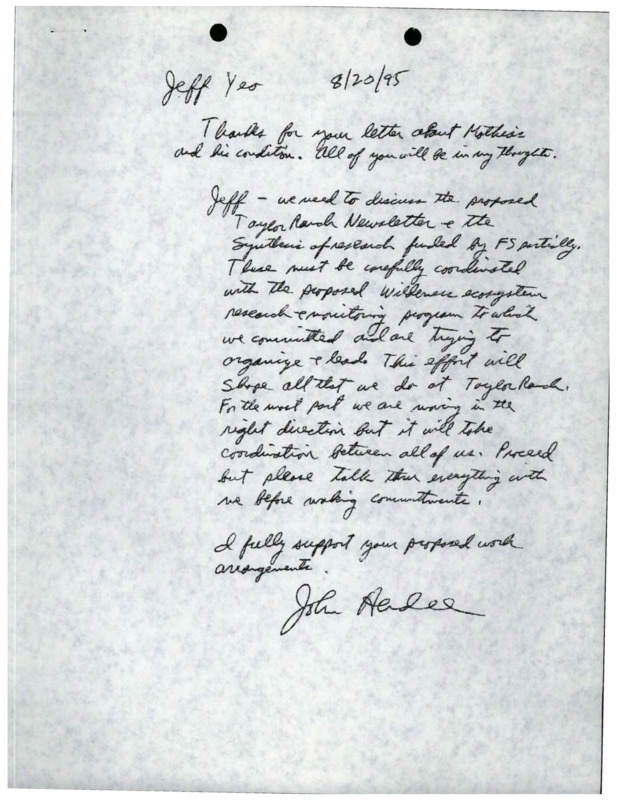 Jeff Yeo 8/20/95
Thanks for your letter about Mathias
and his condition. All of you will be in my thoughts.
Jeff - we need to discuss the proposed
Taylor Ranch Newsletter & the
Synthesis of research funded by FS partially.
These must be carefully coordinated
with the proposed Wilderness ecosystem
research & monitoring program to which
we committed and are trying to
organize & lead. This effort will
Shape all that we do at Taylor Ranch.
For the most part we are moving in the
right direction but it will take
coordination between all of us. Proceed
but please talk thru everything with
me before making commitments.
I fully support your proposed work
arrangements.
John Hendee